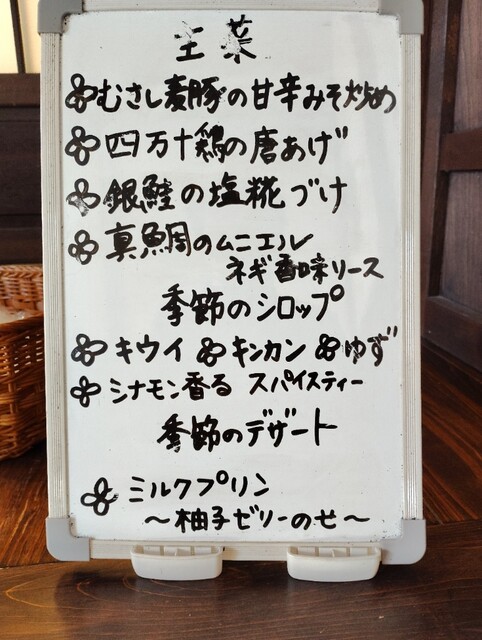 主菜
むさし麦豚の甘辛みそ炒め
四万十鶏の唐あげ
銀鮭の塩糀づけ
真鯛のムニエル
ネギ香味ソース
季節のシロップ
キウイ キンカン ゆず
シナモン香る スパイスティー
季節のデザート
ミルクプリン
〜柚子ゼリーのせ〜